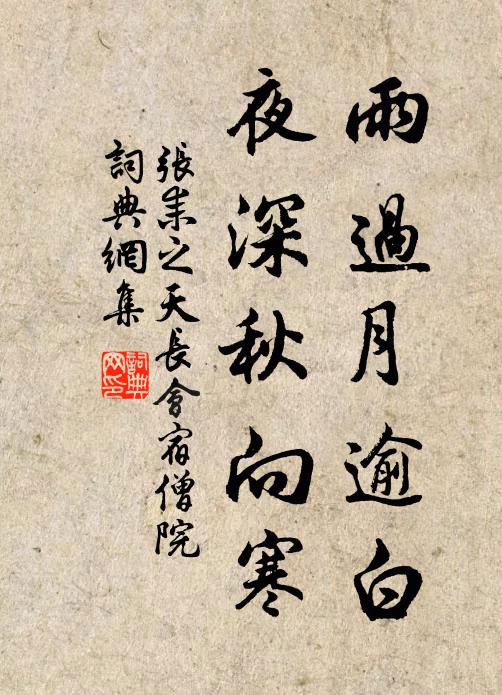 雨過月逾白
夜深秋向寒
張耒之天長會宿僧院
詞典網集
詞典
网印